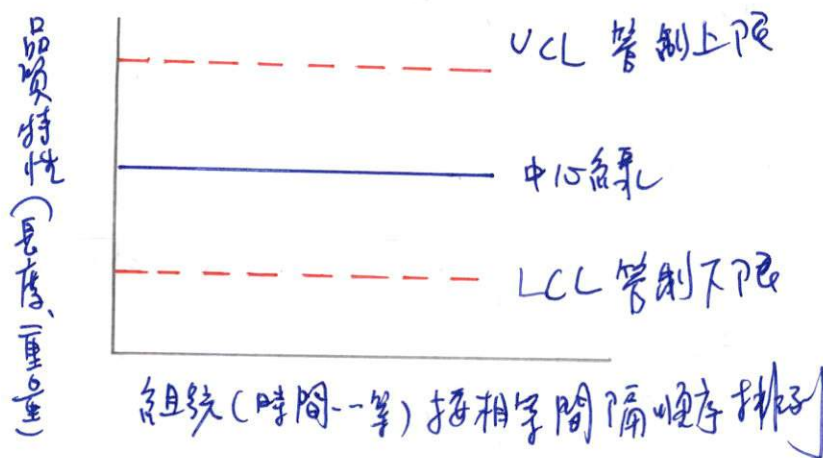 品質特性(長度、重量)
UCL 管制上限
中心線
LCL 管制下限
組號(時間--等)按相等間隔順序排列